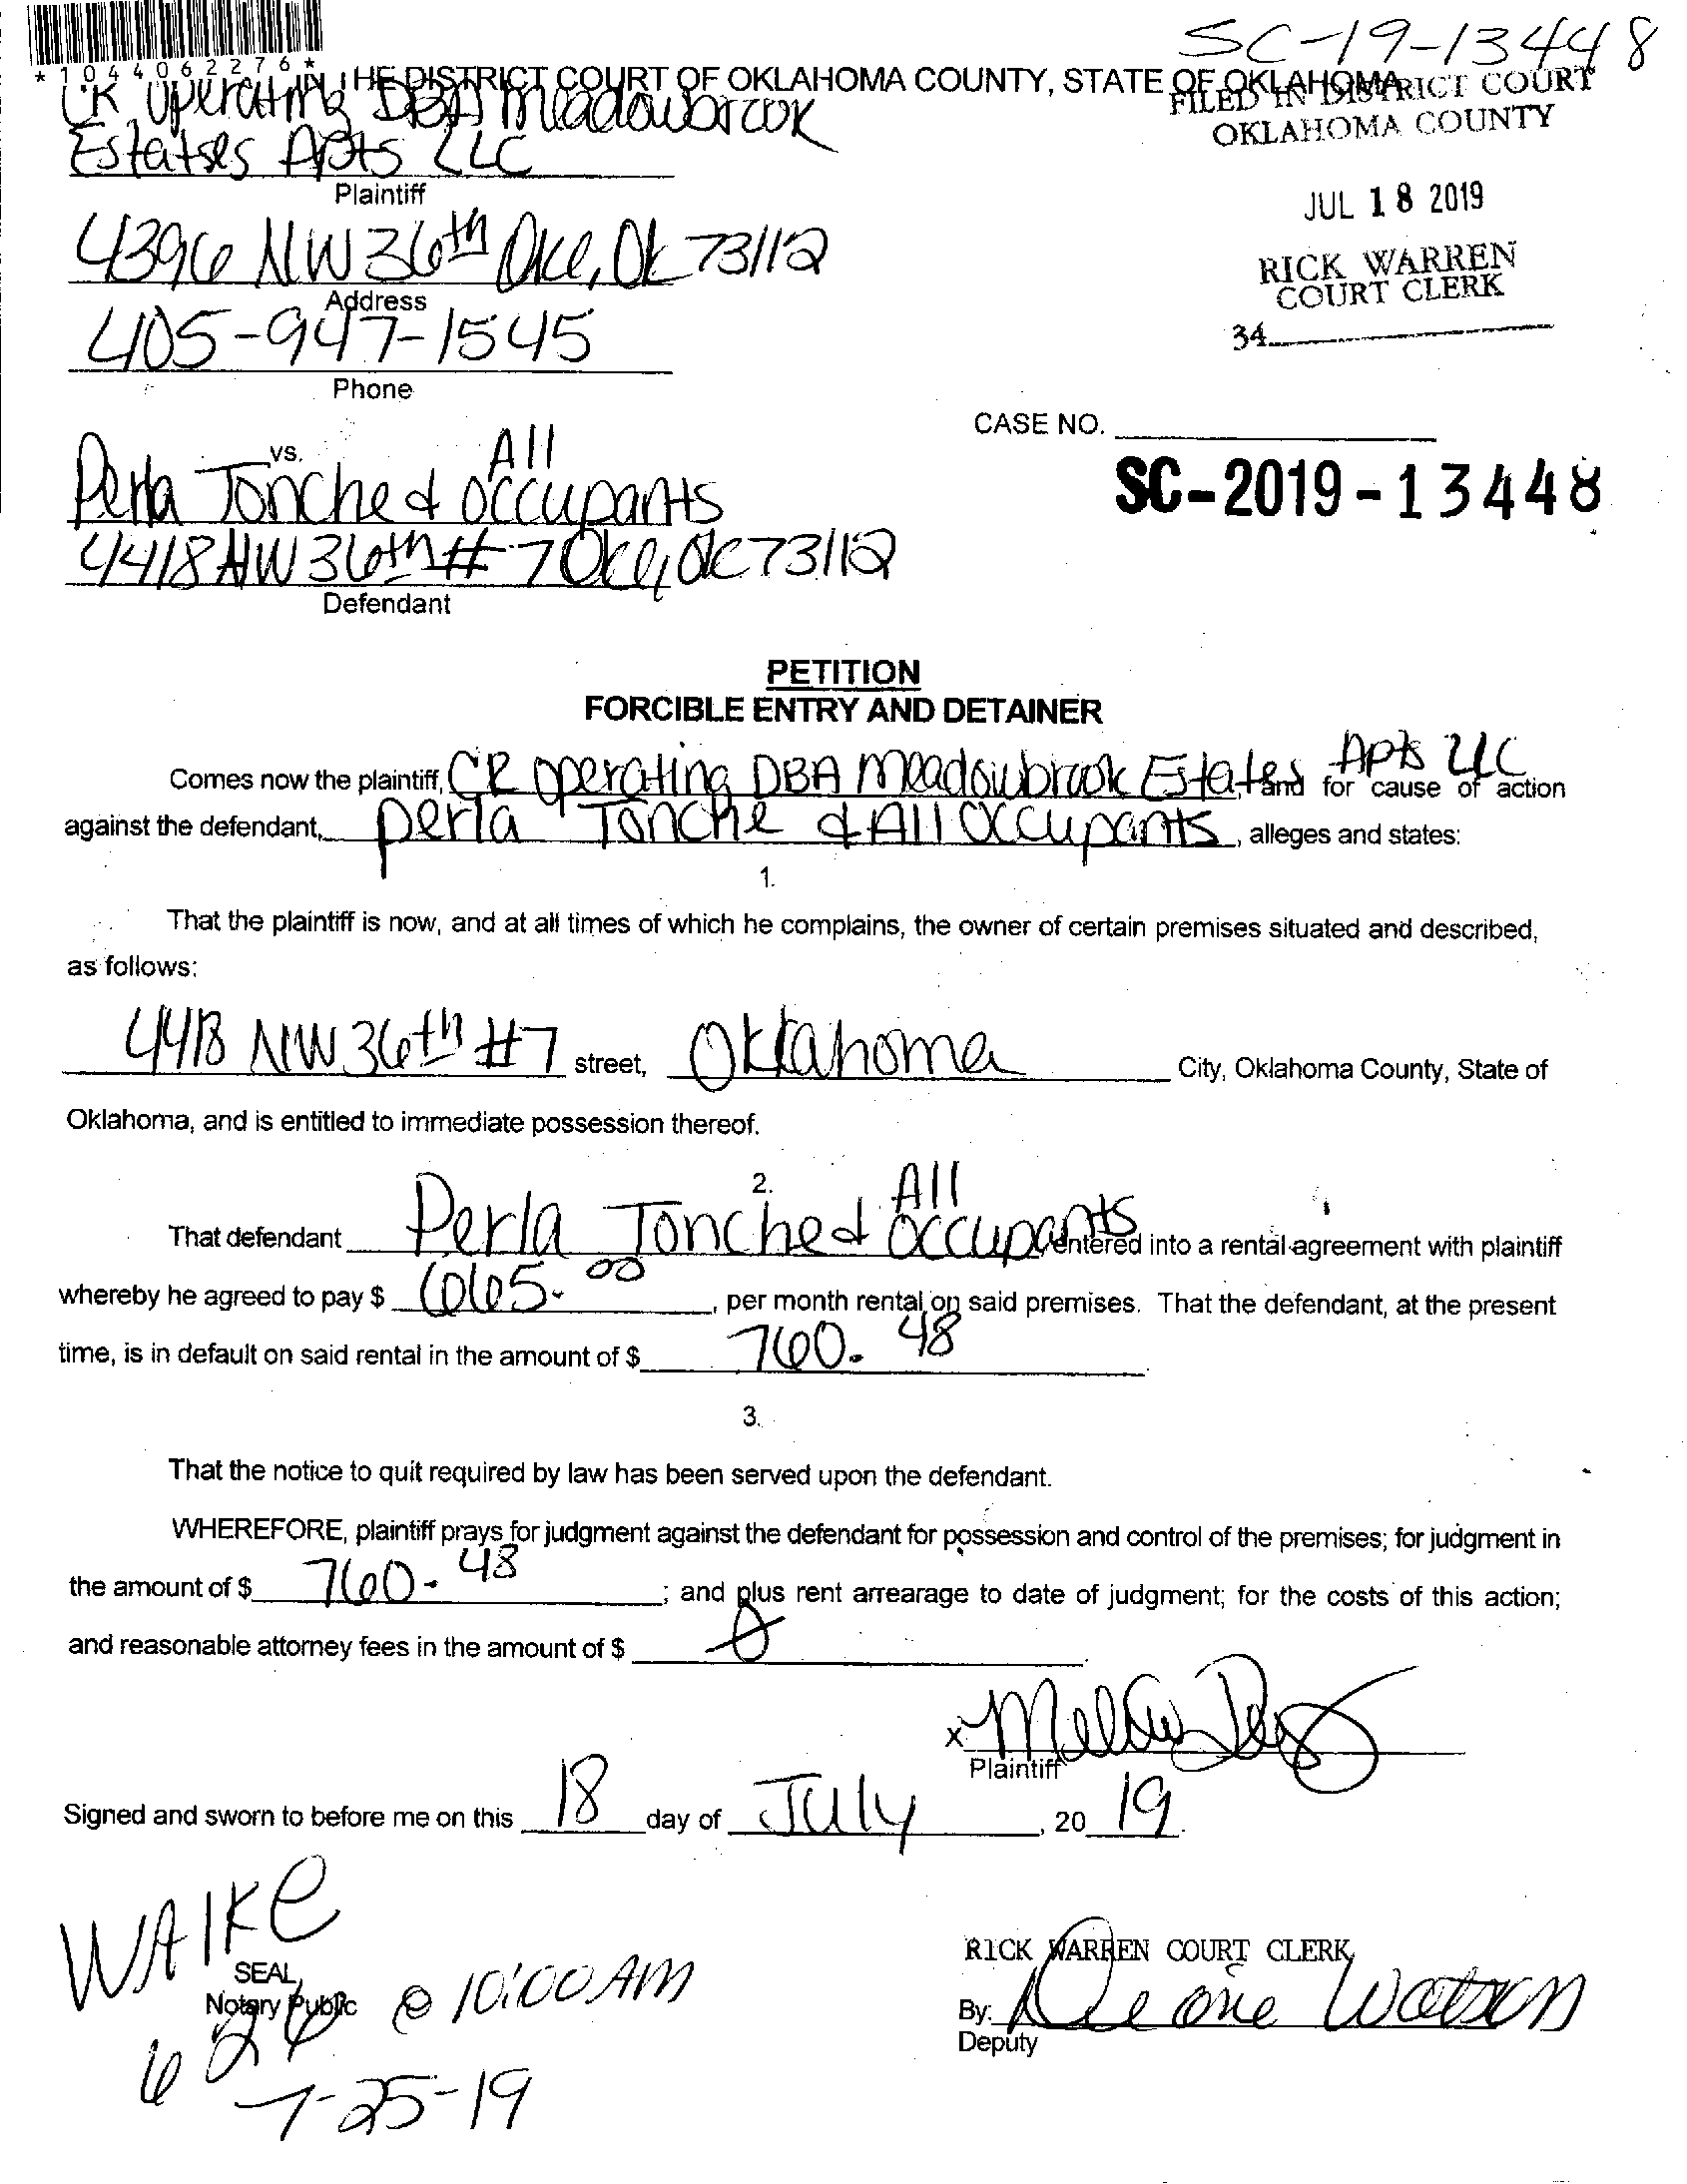 SC-19-13448
*1044062276*
IN THE DISTRICT COURT OF OKLAHOMA COUNTY, STATE OF OKLAHOMA
FILED IN DISTRICT COURT
OKLAHOMA COUNTY
CR Operating DBA Meadowbrook
Estatses Apts LLC
Plaintiff
JUL 18 2019
4396 NW 36th Okc, Ok 73112
RICK WARREN
COURT CLERK
Address
34
405-947-1545
Phone
CASE NO.
vs.
All
Perla Tonche & occupants
SC-2019-13448
4418 NW 36th # 7 Okc, Ok 73112
Defendant
PETITION
FORCIBLE ENTRY AND DETAINER
Comes now the plaintiff, CR Operating DBA Meadowbrook Estates Apts LLC, and for cause of action
against the defendant, Perla Tonche & All Occupants, alleges and states:
1.
That the plaintiff is now, and at all times of which he complains, the owner of certain premises situated and described,
as follows:
4418 NW 36th #7 street, Oklahoma City, Oklahoma County, State of
Oklahoma, and is entitled to immediate possession thereof.
2.
That defendant Perla Tonche & All Occupants entered into a rental agreement with plaintiff
whereby he agreed to pay $ 665.00, per month rental on said premises. That the defendant, at the present
time, is in default on said rental in the amount of $ 760.48.
3.
That the notice to quit required by law has been served upon the defendant.
WHEREFORE, plaintiff prays for judgment against the defendant for possession and control of the premises; for judgment in
the amount of $ 760.48; and plus rent arrearage to date of judgment; for the costs of this action;
and reasonable attorney fees in the amount of $ 0.
x
Plaintiff
Signed and sworn to before me on this 18 day of July, 20 19.
WAlKe
SEAL
Notary Public
@ 10:00 AM
RICK WARREN COURT CLERK
By:
Watson
Deputy
7-25-19